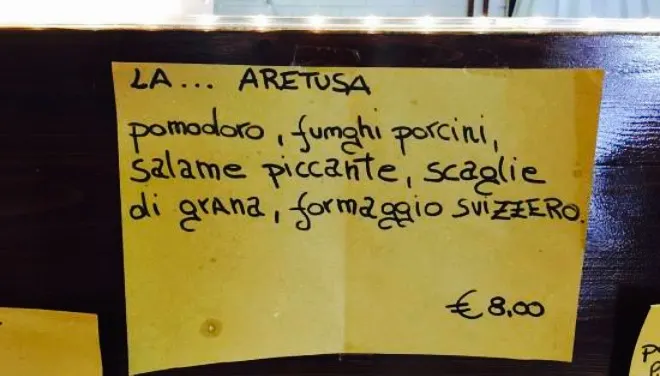 LA... ARETUSA
pomodoro, fumghi porcini,
salame piccante, scaglie
di grana, formaggio SVIZZERO.
€ 8,00